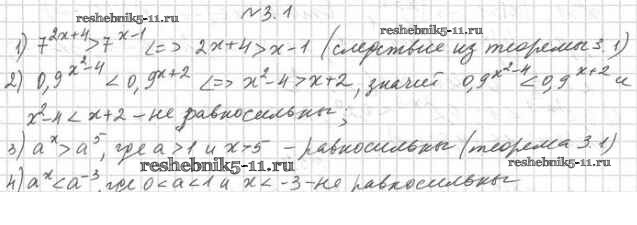 №3.1
reshebnik5-11.ru
1) 7^{2x+4}>7^{x-1} <=> 2x+4>x-1 (следствие из теоремы 3.1)
reshebnik5-11.ru
2) 0,9^{x²-4} < 0,9^{x+2} <=> x²-4>x+2, значит 0,9^{x²-4} < 0,9^{x+2} и
x²-4<x+2 - не равносильны;
3) a^x>a^5, где a>1 и x>5 - равносильны (теорема 3.1)
reshebnik5-11.ru
reshebnik5-11.ru
4) a^x<a^{-3}, где 0<a<1 и x<-3 - не равносильны